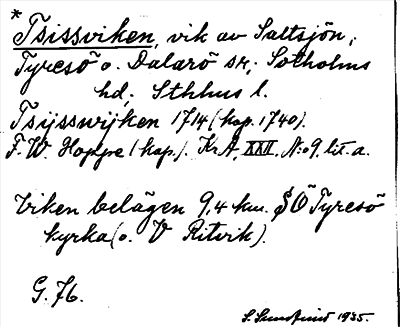 *
Tsissviken, vik av Saltsjön;
Tyresö o. Dalarö sr; Sotholms
hd; Sthlms l.
Tsijsswijken 1714 (kop. 1740).
F. W. Hoppe (kop.). Kr A, XXII, N:o 9, lit. a.
Viken belägen 9,4 km. SÖ Tyresö
kyrka (o. V Ritvik).
G. 76.
S. Sundqvist 1935.